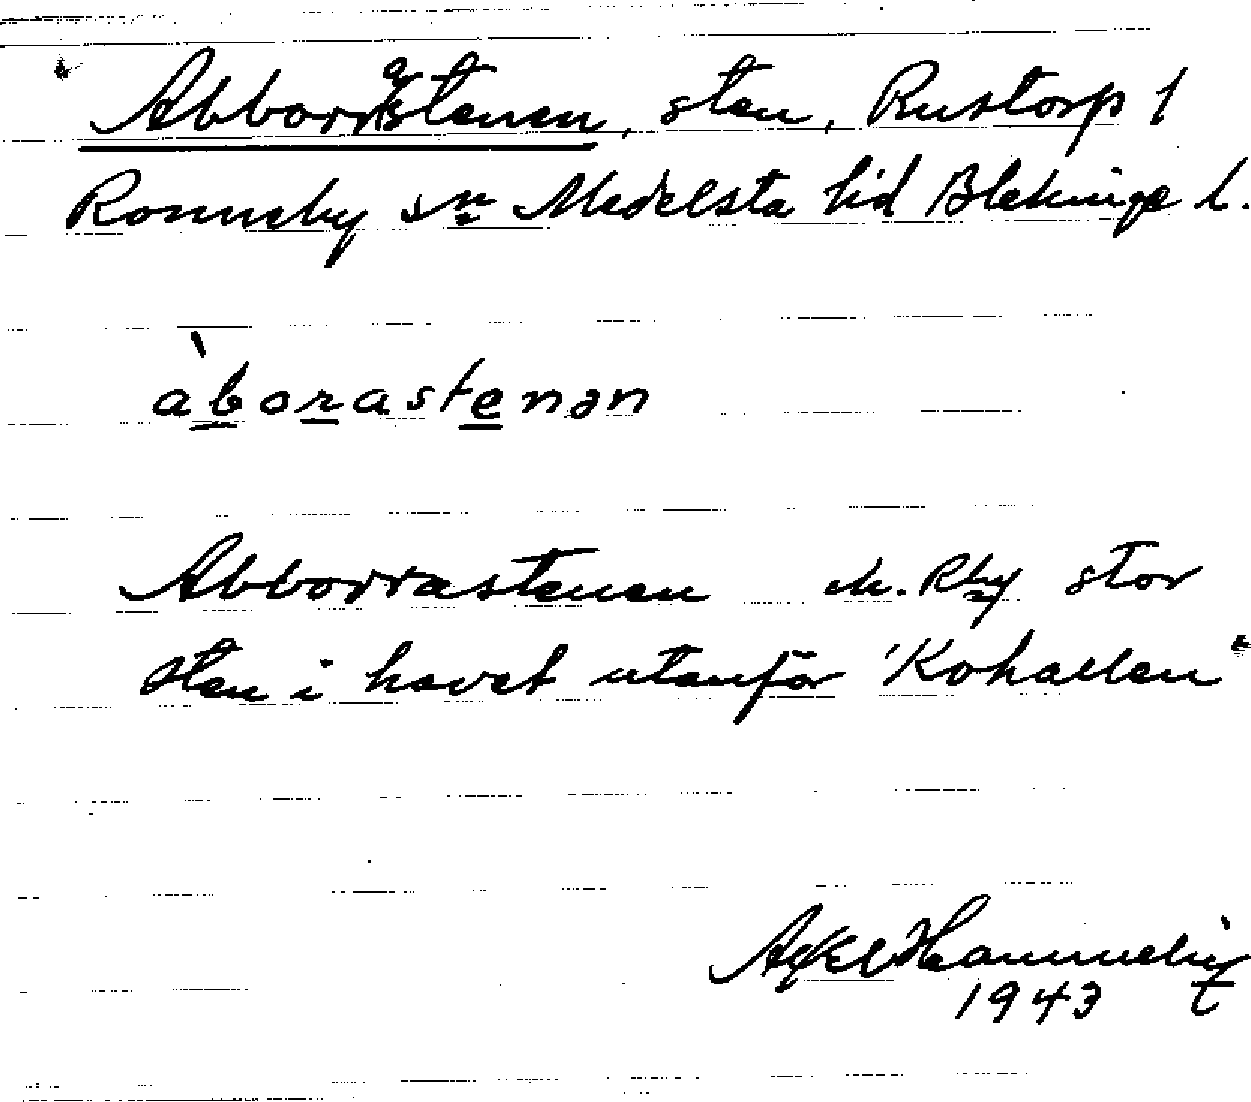 Abborrastenen, sten, Rustorp i
Ronneby sn Medelsta hd Blekinge l.
àborastenən
Abborrastenen M. Rby stor
sten i havet utanför "Kohallen"
Axel
1943